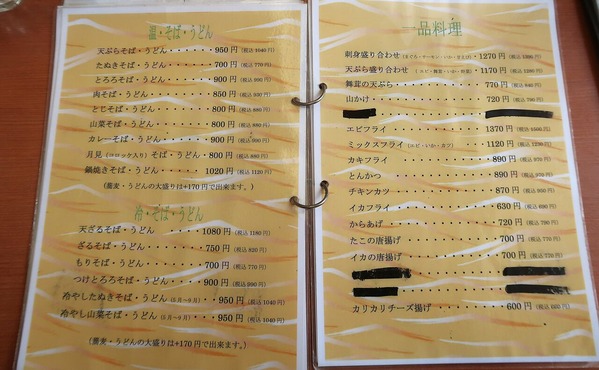 温・そば・うどん
天ぷらそば・うどん・・・・・・・950円(税込1040円)
たぬきそば・うどん・・・・・・・700円(税込770円)
とろろそば・うどん・・・・・・・900円(税込990円)
肉そば・うどん・・・・・・・・・850円(税込930円)
とじそば・うどん・・・・・・・・800円(税込880円)
山菜そば・うどん・・・・・・・・800円(税込880円)
カレーそば・うどん・・・・・・・900円(税込990円)
月見(コロッケ入り)そば・うどん・・800円(税込880円)
鍋焼きそば・うどん・・・・・・・1020円(税込1120円)
(蕎麦・うどんの大盛りは+170円で出来ます。)
冷・そば・うどん
天ざるそば・うどん・・・・・・1080円(税込1180円)
ざるそば・うどん・・・・・・・・750円(税込820円)
もりそば・うどん・・・・・・・・700円(税込770円)
つけとろろそば・うどん・・・・・900円(税込990円)
冷やしたぬきそば・うどん(5月~9月)・・950円(税込1040円)
冷やし山菜そば・うどん(5月~9月)・・950円(税込1040円)
(蕎麦・うどんの大盛りは+170円で出来ます。)
一品料理
刺身盛り合わせ・・1270円
天ぷら盛り合わせ(エビ・舞茸・いか・野菜)・・1170円(税込1280円)
舞茸の天ぷら・・・・・・・・・・770円(税込840円)
山かけ・・・・・・・・・・・・・720円(税込790円)
エビフライ・・・・・・・・・・・1370円(税込1500円)
ミックスフライ(エビ・いか・カツ)・・・1120円(税込1230円)
カキフライ・・・・・・・・・・・890円(税込970円)
とんかつ・・・・・・・・・・・・890円(税込970円)
チキンカツ・・・・・・・・・・・870円(税込950円)
イカフライ・・・・・・・・・・・630円(税込690円)
からあげ・・・・・・・・・・・・720円(税込790円)
たこの唐揚げ・・・・・・・・・・700円(税込770円)
イカの唐揚げ・・・・・・・・・・700円(税込770円)
カリカリチーズ揚げ・・・・・・・600円(税込660円)